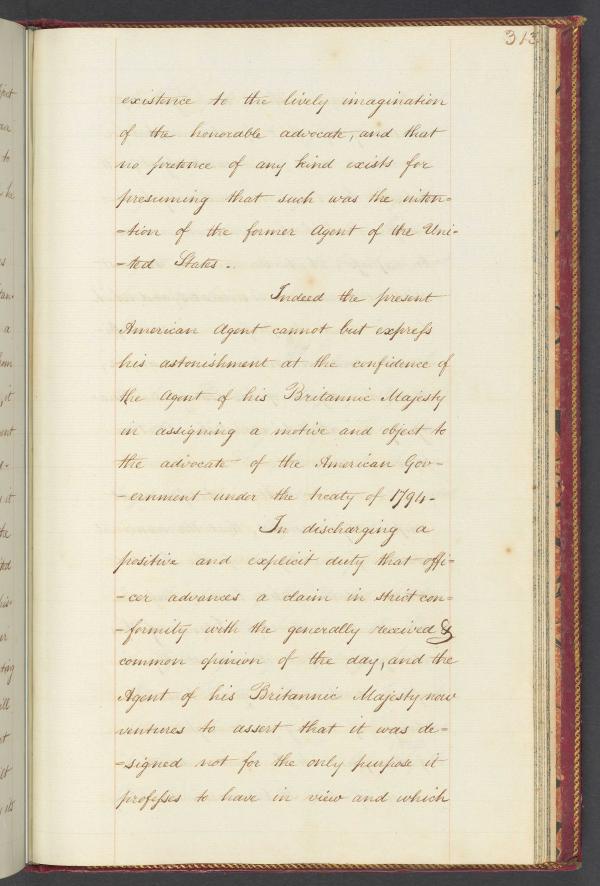 313
existence to the lively imagination
of the honorable advocate, and that
no pretence of any kind exists for
presuming that such was the inten-
-tion of the former Agent of the Uni-
-ted States..
Indeed the present
American Agent cannot but express
his astonishment at the confidence of
the Agent of his Britannic Majesty
in assigning a motive and object to
the advocate of the American Gov-
-ernment under the treaty of 1794-
In discharging a
positive and explicit duty that offi-
-cer advances a claim in strict con-
-formity with the generally received &
common opinion of the day, and the
Agent of his Britannic Majesty now
ventures to assert that it was de-
-signed not for the only purpose it
professes to have in view and which